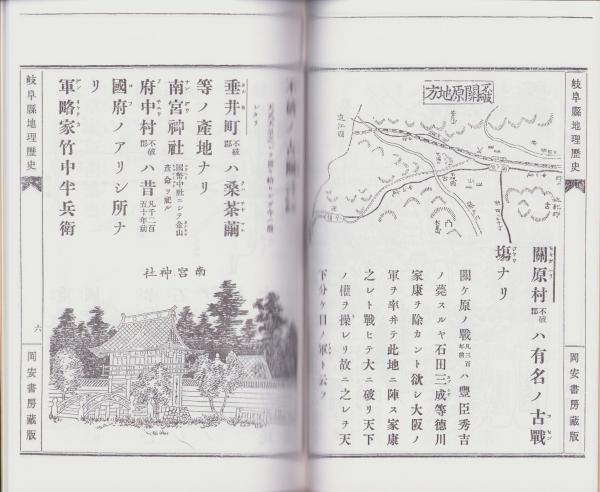 岐阜縣地理歷史
岡安書房藏版
關原地方
近江國
關原村不破郡ハ有名ノ古戰
塲ナリ
關ケ原ノ戰凡三百年前ハ豐臣秀吉
ノ薨スルヤ石田三成等德川
家康ヲ除カント欲シ大阪ノ
軍ヲ率ヰテ此地ニ陣ス家康
之レト戰ヒテ大ニ破リ天下
ノ權ヲ操レリ故ニ之レヲ天
下分ケ目ノ軍ト云フ
垂井町不破郡ハ桑茶繭
等ノ產地ナリ
南宮神社國幣中社ニシテ金山彥命ヲ祀ル
府中村不破郡ハ昔凡千二百五十年前
國府ノアリシ所ナ
リ
軍略家竹中半兵衛
南宮神社
岐阜縣地理歷史
六
岡安書房藏版